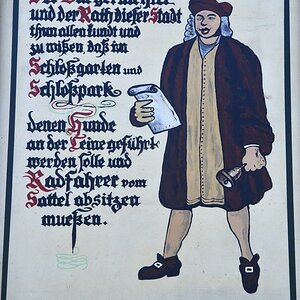 Der Bürgermeister
und der Rath dieser Stadt
thun allen kundt und
zu wißen, daß im
Schloßgarten und
Schloßpark
denen Hunde
an der Leine geführt
werden solle und
Radfahrer vom
Sattel absitzen
mueßen.